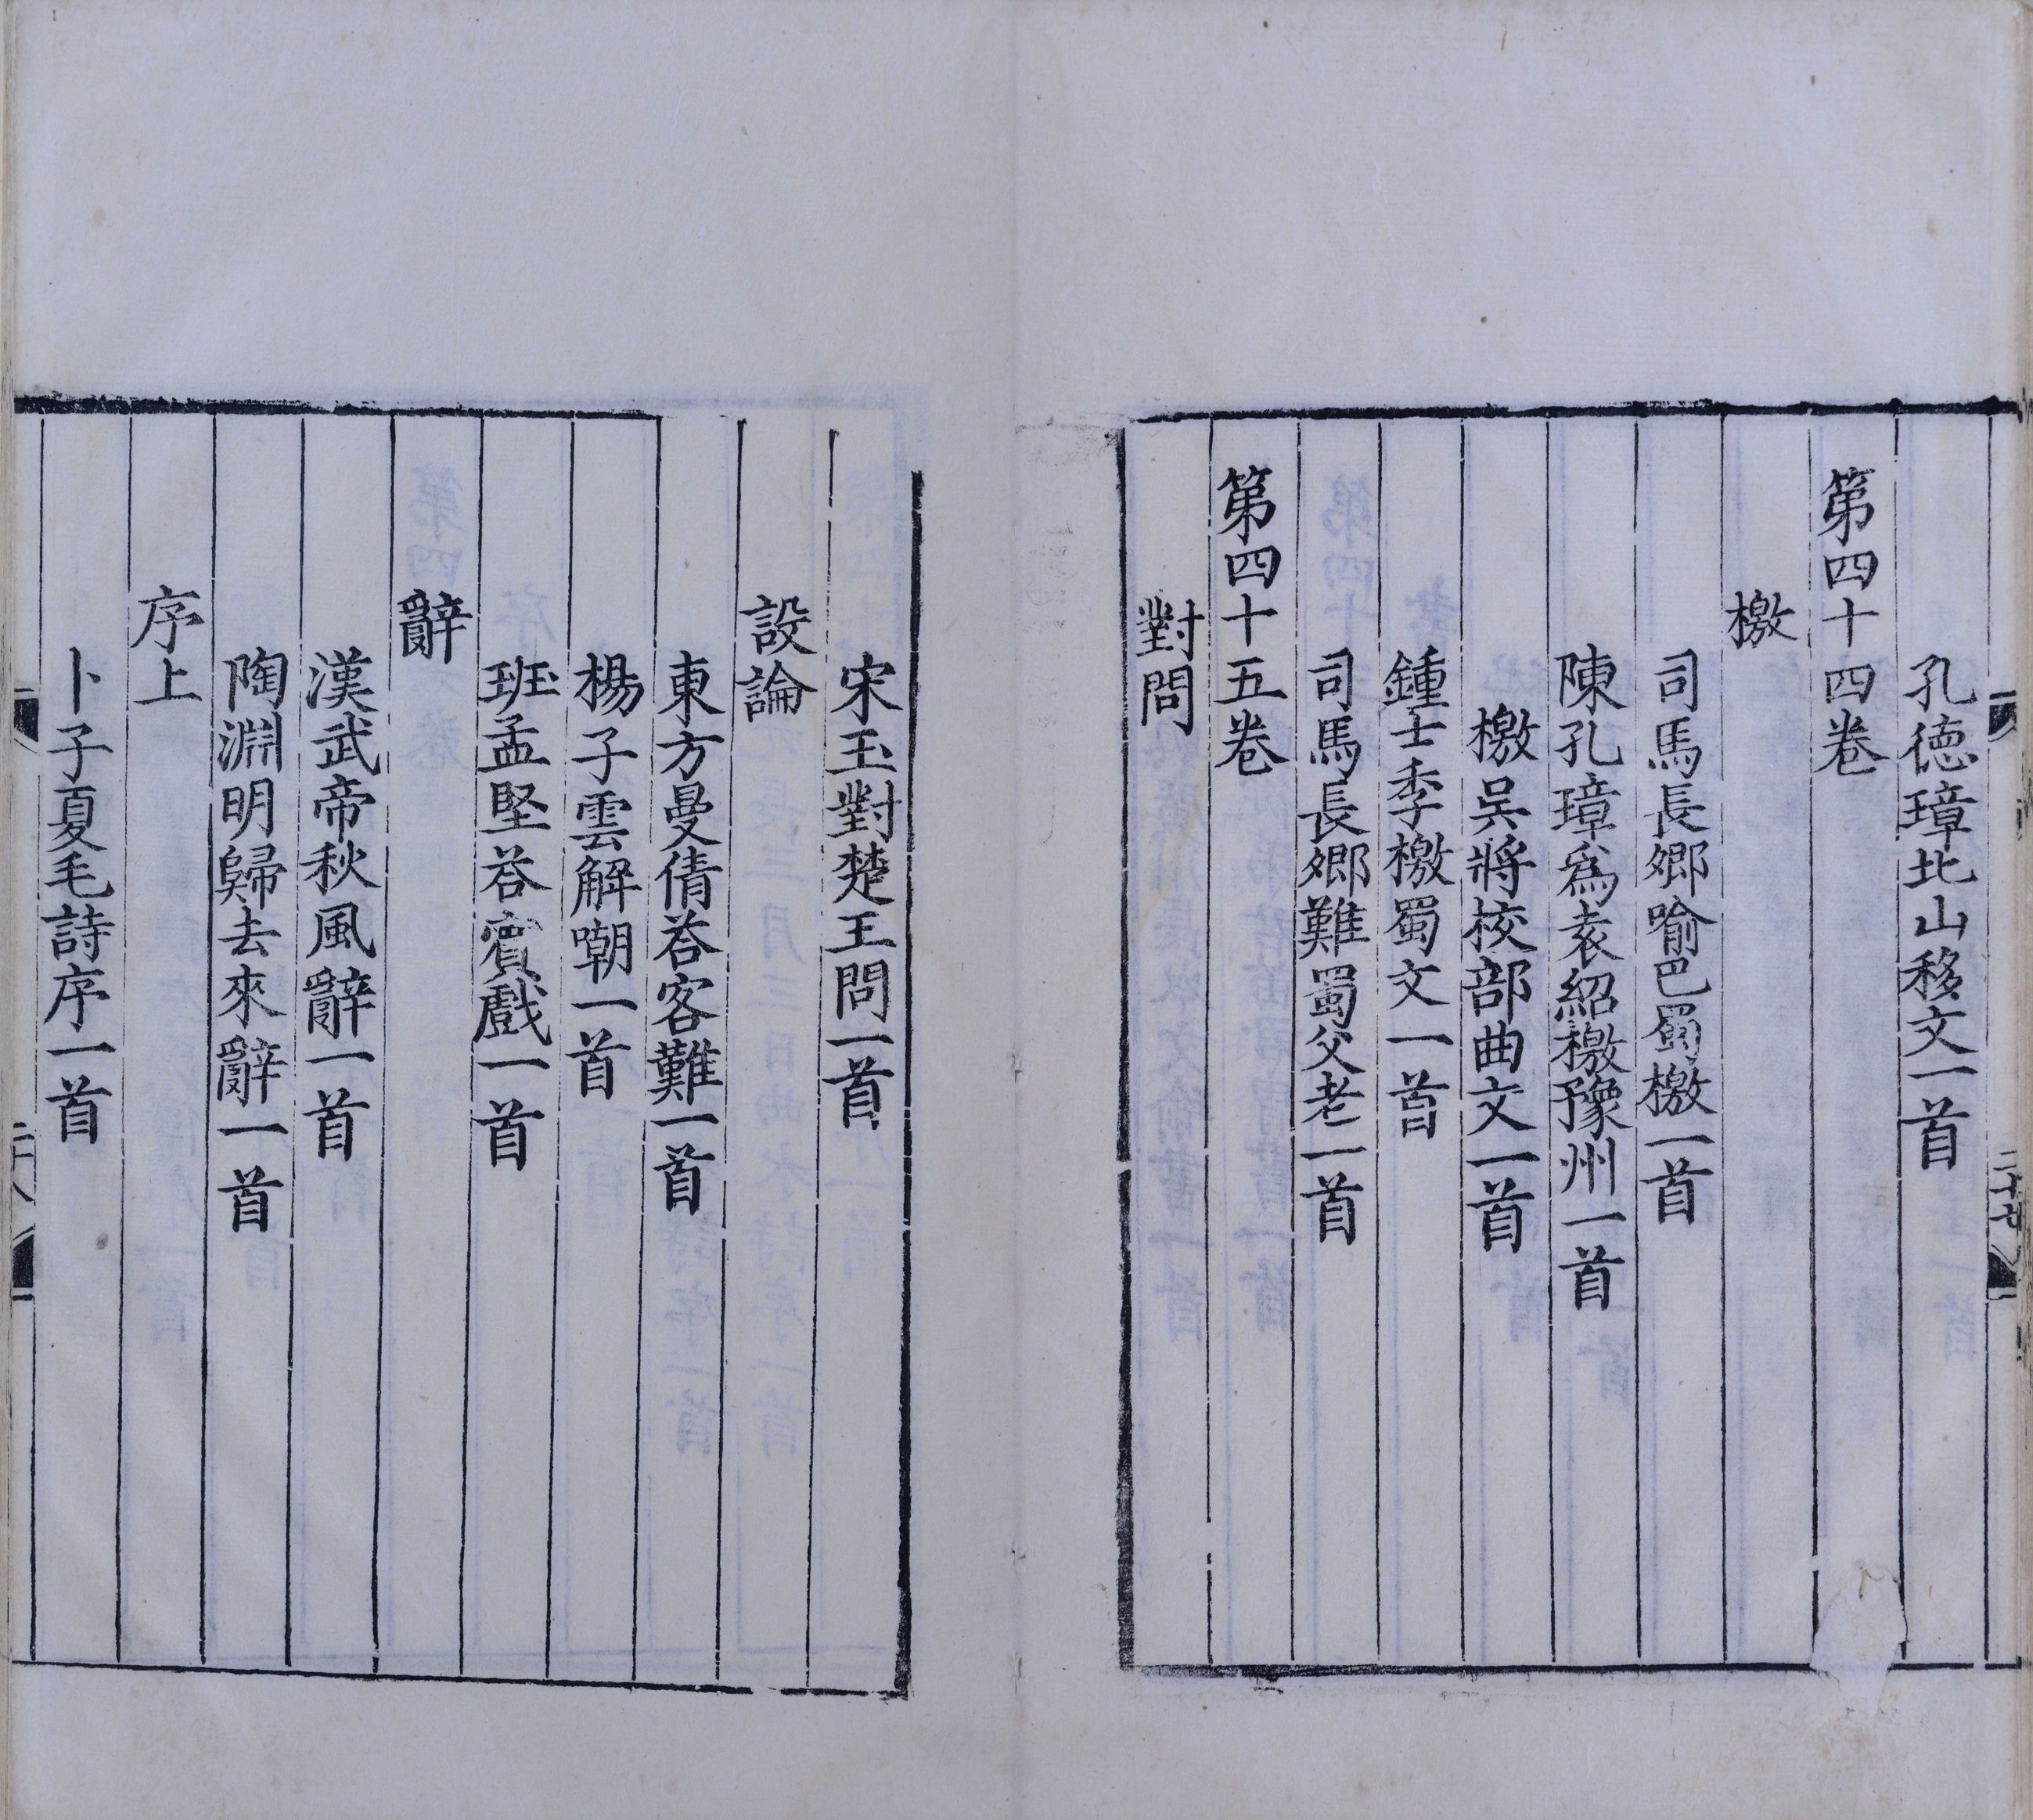 孔德璋北山移文一首
第四十四卷
檄
司馬長卿喻巴蜀檄一首
陳孔璋爲袁紹檄豫州一首
檄吳將校部曲文一首
鍾士季檄蜀文一首
司馬長卿難蜀父老一首
第四十五卷
對問
宋玉對楚王問一首
設論
東方曼倩荅客難一首
楊子雲解嘲一首
班孟堅荅賓戲一首
辭
漢武帝秋風辭一首
陶淵明歸去來辭一首
序上
卜子夏毛詩序一首